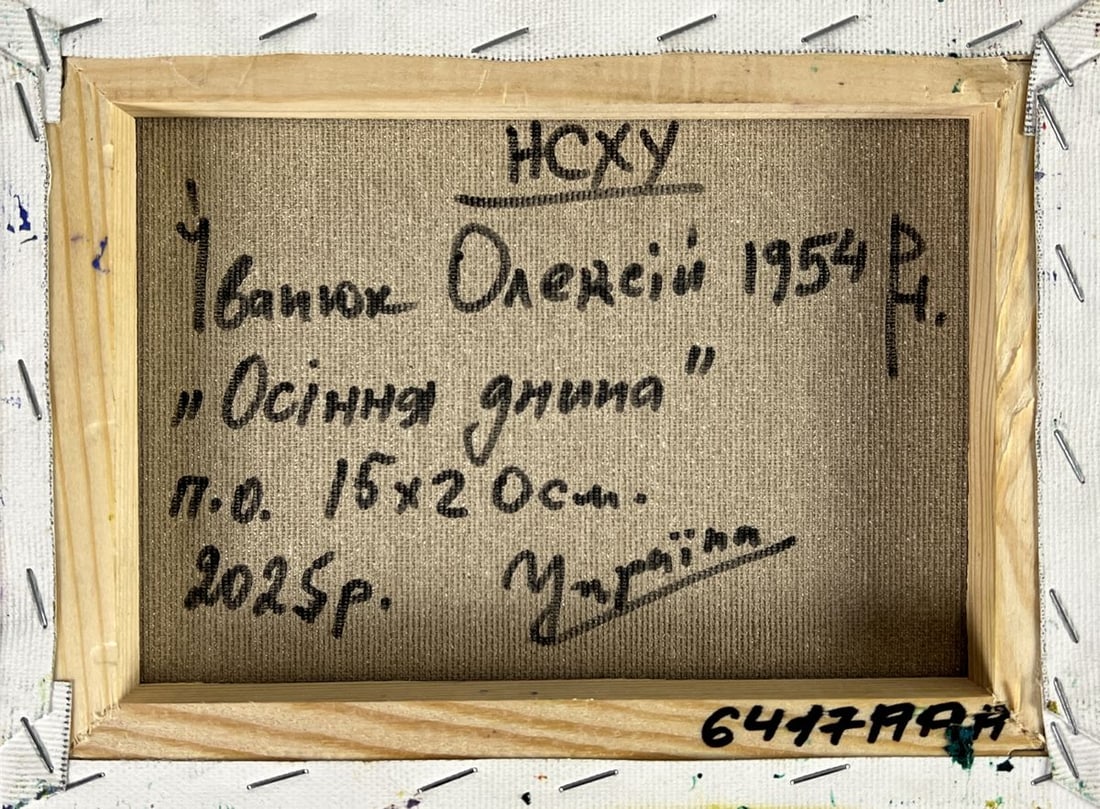 НСХУ
Іванюк Олексій 1954 р.н.
„Осіння днина"
п.о. 15х20см.
2025р. Україна
6417ААА